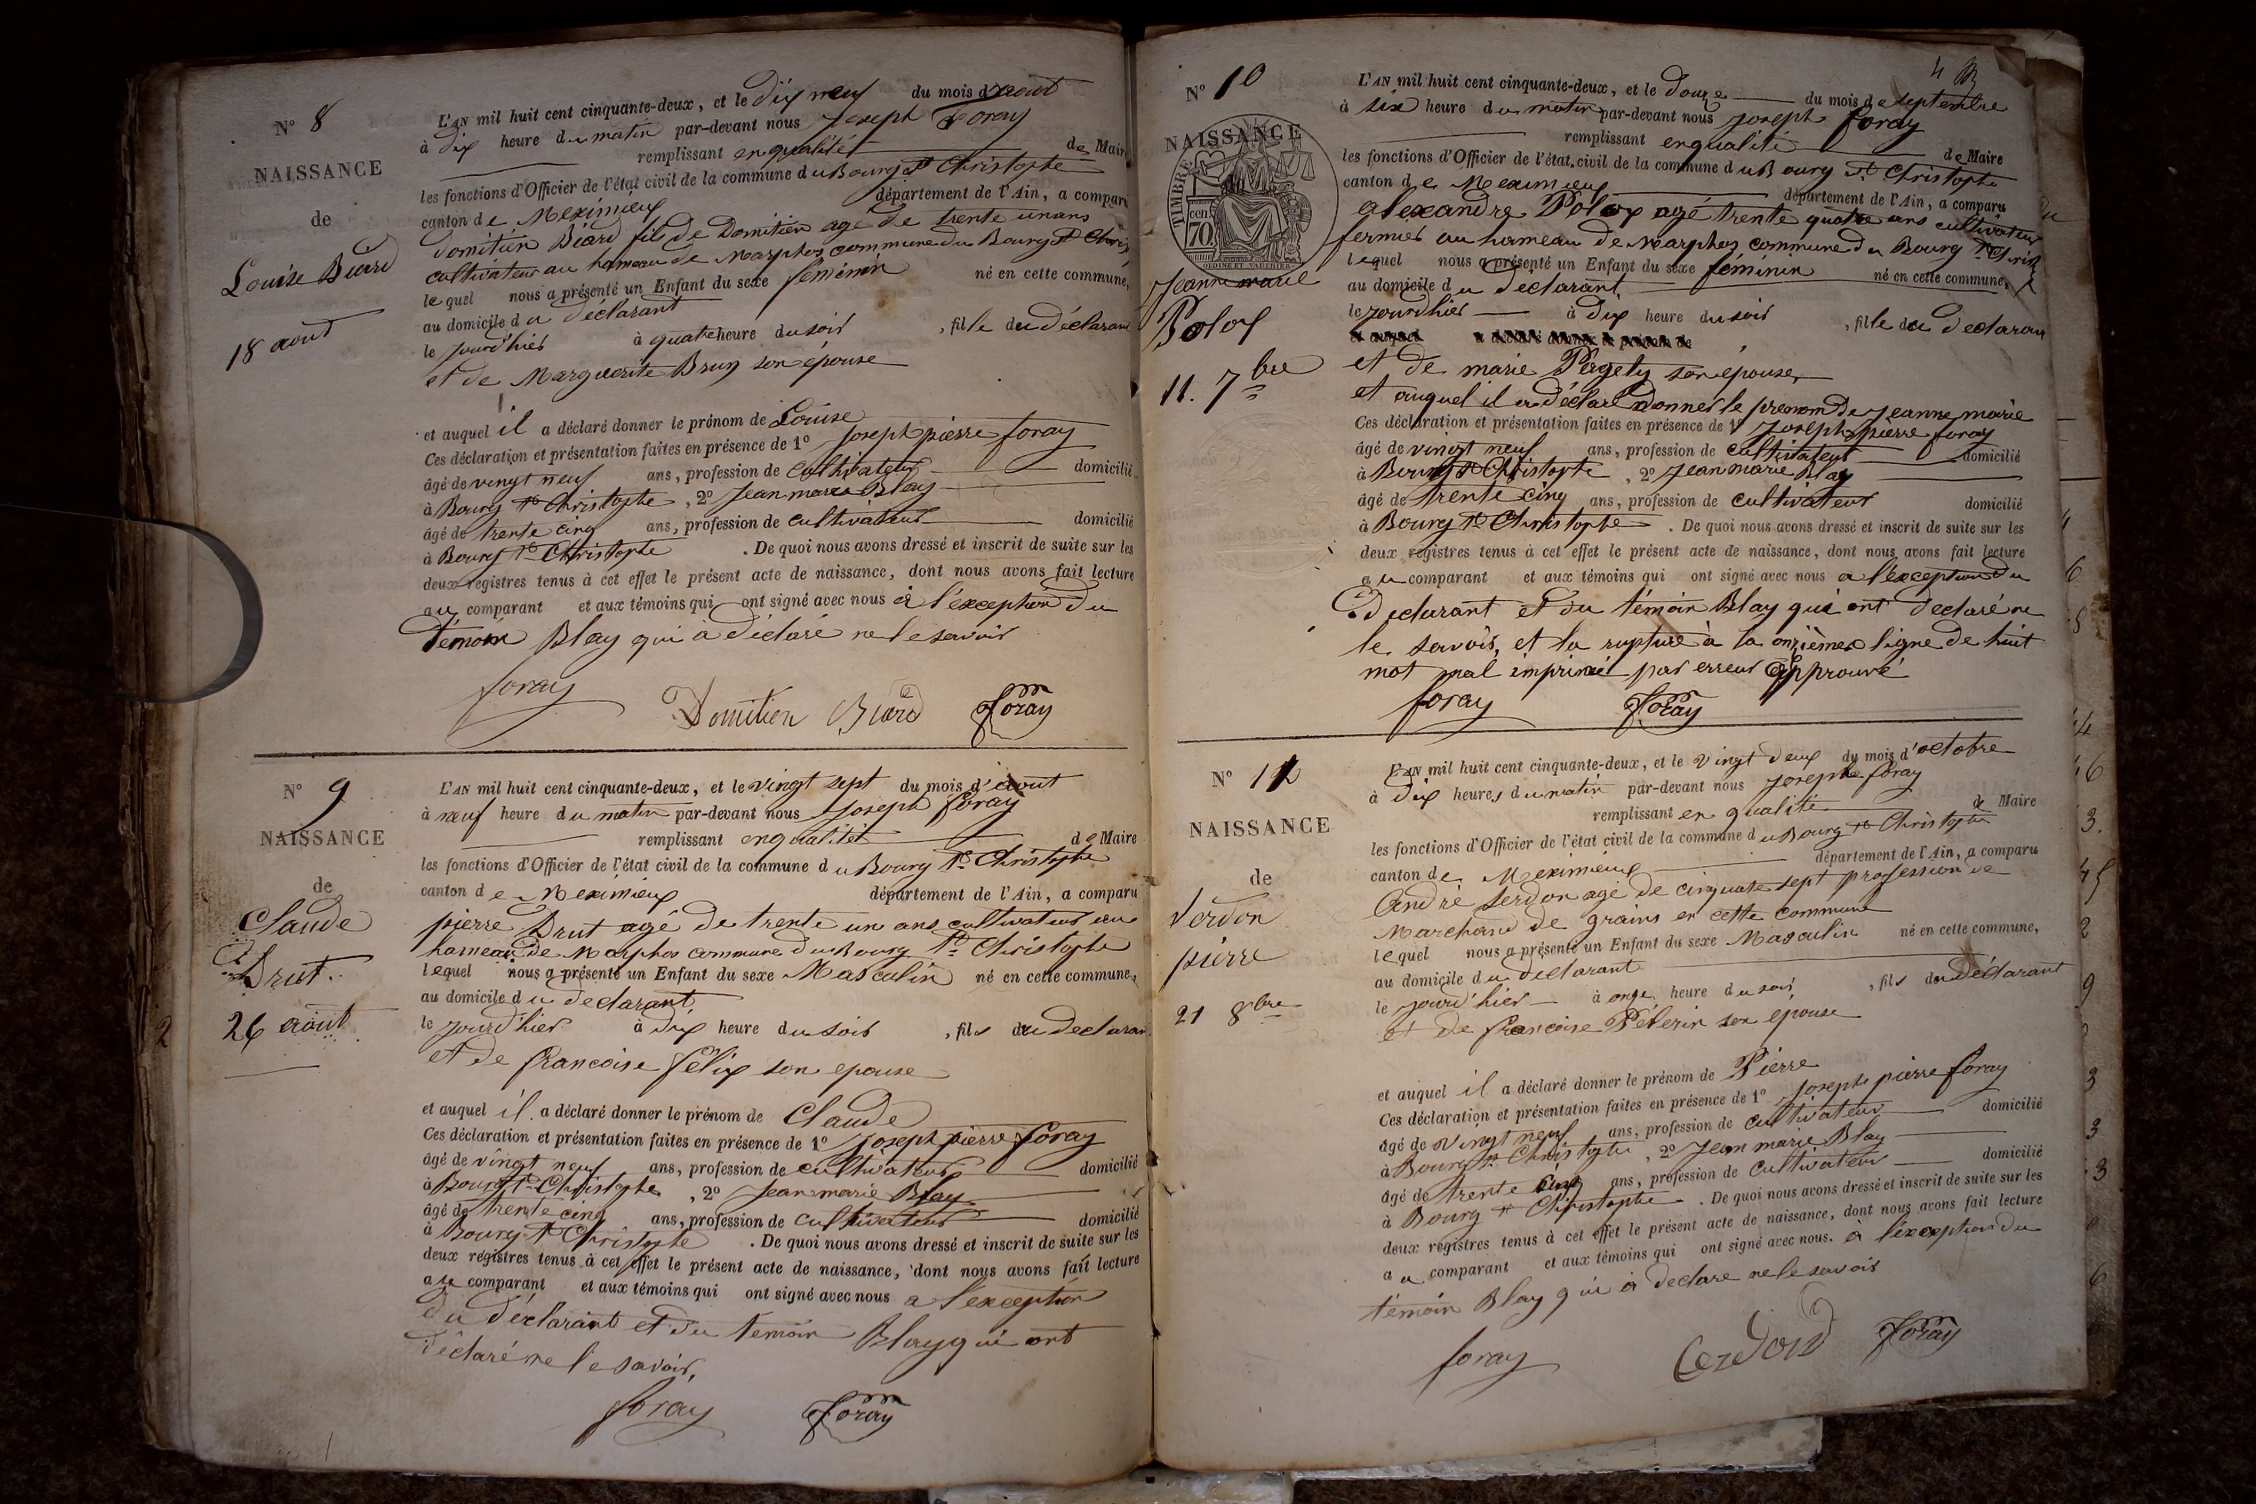 N° 8
NAISSANCE
de
Louise Biard
18 aout
L'AN mil huit cent cinquante-deux, et le dix neuf du mois d'aout
à dix heure du matin par-devant nous Joseph Foray
remplissant en qualité de Maire
les fonctions d'Officier de l'état civil de la commune du Bourg St Christophe
canton de Meximieux département de l'Ain, a comparu
domitien Biard fils de Domitien agé de trente un ans
cultivateur au hameau de Marphos commune du Bourg St Chris
lequel nous a présenté un Enfant du sexe féminin né en cette commune,
au domicile du déclarant
le jourd'hier à quatre heure du soir , fille du déclarant
et de Marguerite Brun son épouse
et auquel il a déclaré donner le prénom de Louise
Ces déclaration et présentation faites en présence de 1° Joseph pierre foray
âgé de vingt neuf ans, profession de cultivateur domicilié
à Bourg St Christophe , 2° Jean marie Blay
âgé de trente cinq ans, profession de cultivateur domicilié
à Bourg St Christophe . De quoi nous avons dressé et inscrit de suite sur les
deux registres tenus à cet effet le présent acte de naissance, dont nous avons fait lecture
au comparant et aux témoins qui ont signé avec nous à l'exception du
témoin Blay qui a déclaré ne le savoir
foray Domitien Biard Foray
N° 9
NAISSANCE
de
Claude
Drut
26 août
L'AN mil huit cent cinquante-deux, et le vingt sept du mois d'aout
à neuf heure du matin par-devant nous Joseph foray
remplissant en qualité de Maire
les fonctions d'Officier de l'état civil de la commune du Bourg St Christophe
canton de Meximieux département de l'Ain, a comparu
pierre Drut agé de trente un ans cultivateur au
hameau de Marphos commune du Bourg St Christophe
lequel nous a présenté un Enfant du sexe Masculin né en cette commune,
au domicile du declarant
le jourd'hier à dix heure du soir , fils du declaran
et de francoise félix son epouse
et auquel il a déclaré donner le prénom de Claude
Ces déclaration et présentation faites en présence de 1° Joseph pierre foray
âgé de vingt neuf ans, profession de cultivateur domicilié
à Bourg St Christophe , 2° Jean marie Blay
âgé de trente cinq ans, profession de cultivateur domicilié
à Bourg St Christophe . De quoi nous avons dressé et inscrit de suite sur les
deux registres tenus à cet effet le présent acte de naissance, dont nous avons fait lecture
au comparant et aux témoins qui ont signé avec nous a l'exception
du déclarant et du temoin Blay qui ont
déclaré ne le savoir,
foray Foray
4
N° 10
NAISSANCE
TIMBRE
70 cen
Jeanne marie
Polox
11. 7bre
L'AN mil huit cent cinquante-deux, et le douze du mois de septembre
à six heure du matin par-devant nous Joseph foray
remplissant en qualité de Maire
les fonctions d'Officier de l'état civil de la commune du Bourg St Christophe
canton de Meximieux département de l'Ain, a comparu
alexandre Polox agé trente quatre ans cultivateur
fermier au hameau de Marphos commune du Bourg St Chris
lequel nous a présenté un Enfant du sexe féminin né en cette commune,
au domicile du declarant
le jourd'hier à dix heure du soir , fille du declaran
et de marie Pergety son epouse,
et auquel il a déclaré donner le prenom de Jeanne marie
Ces déclaration et présentation faites en présence de 1° Joseph pierre foray
âgé de vingt neuf ans, profession de cultivateur domicilié
à Bourg St Christophe , 2° Jean marie Blay
âgé de trente cinq ans, profession de cultivateur domicilié
à Bourg St Christophe . De quoi nous avons dressé et inscrit de suite sur les
deux registres tenus à cet effet le présent acte de naissance, dont nous avons fait lecture
au comparant et aux témoins qui ont signé avec nous a l'exception du
declarant et du témoin Blay qui ont declaré ne
le savoir, et la rupture à la onzième ligne de huit
mot mal imprimé par erreur approuvé
foray Foray
N° 11
NAISSANCE
de
Verdon
pierre
21 8bre
L'AN mil huit cent cinquante-deux, et le vingt deux du mois d'octobre
à dix heures du matin par-devant nous Joseph foray
remplissant en qualité de Maire
les fonctions d'Officier de l'état civil de la commune du Bourg St Christophe
canton de Meximieux département de l'Ain, a comparu
André Verdon agé de cinquate sept profession de
Marchand de grains en cette commune
lequel nous a présenté un Enfant du sexe Masculin né en cette commune,
au domicile du declarant
le jourd'hier à onze heure du soir , fils du déclarant
et de francoise Pélerin son epouse
et auquel il a déclaré donner le prénom de Pierre
Ces déclaration et présentation faites en présence de 1° Joseph pierre foray
âgé de vingt neuf ans, profession de cultivateur domicilié
à Bourg St Christophe , 2° Jean marie Blay
âgé de trente cinq ans, profession de cultivateur domicilié
à Bourg St Christophe . De quoi nous avons dressé et inscrit de suite sur les
deux registres tenus à cet effet le présent acte de naissance, dont nous avons fait lecture
au comparant et aux témoins qui ont signé avec nous. à l'exception du
témoin Blay qui à declare ne le savoir
foray Verdon Foray